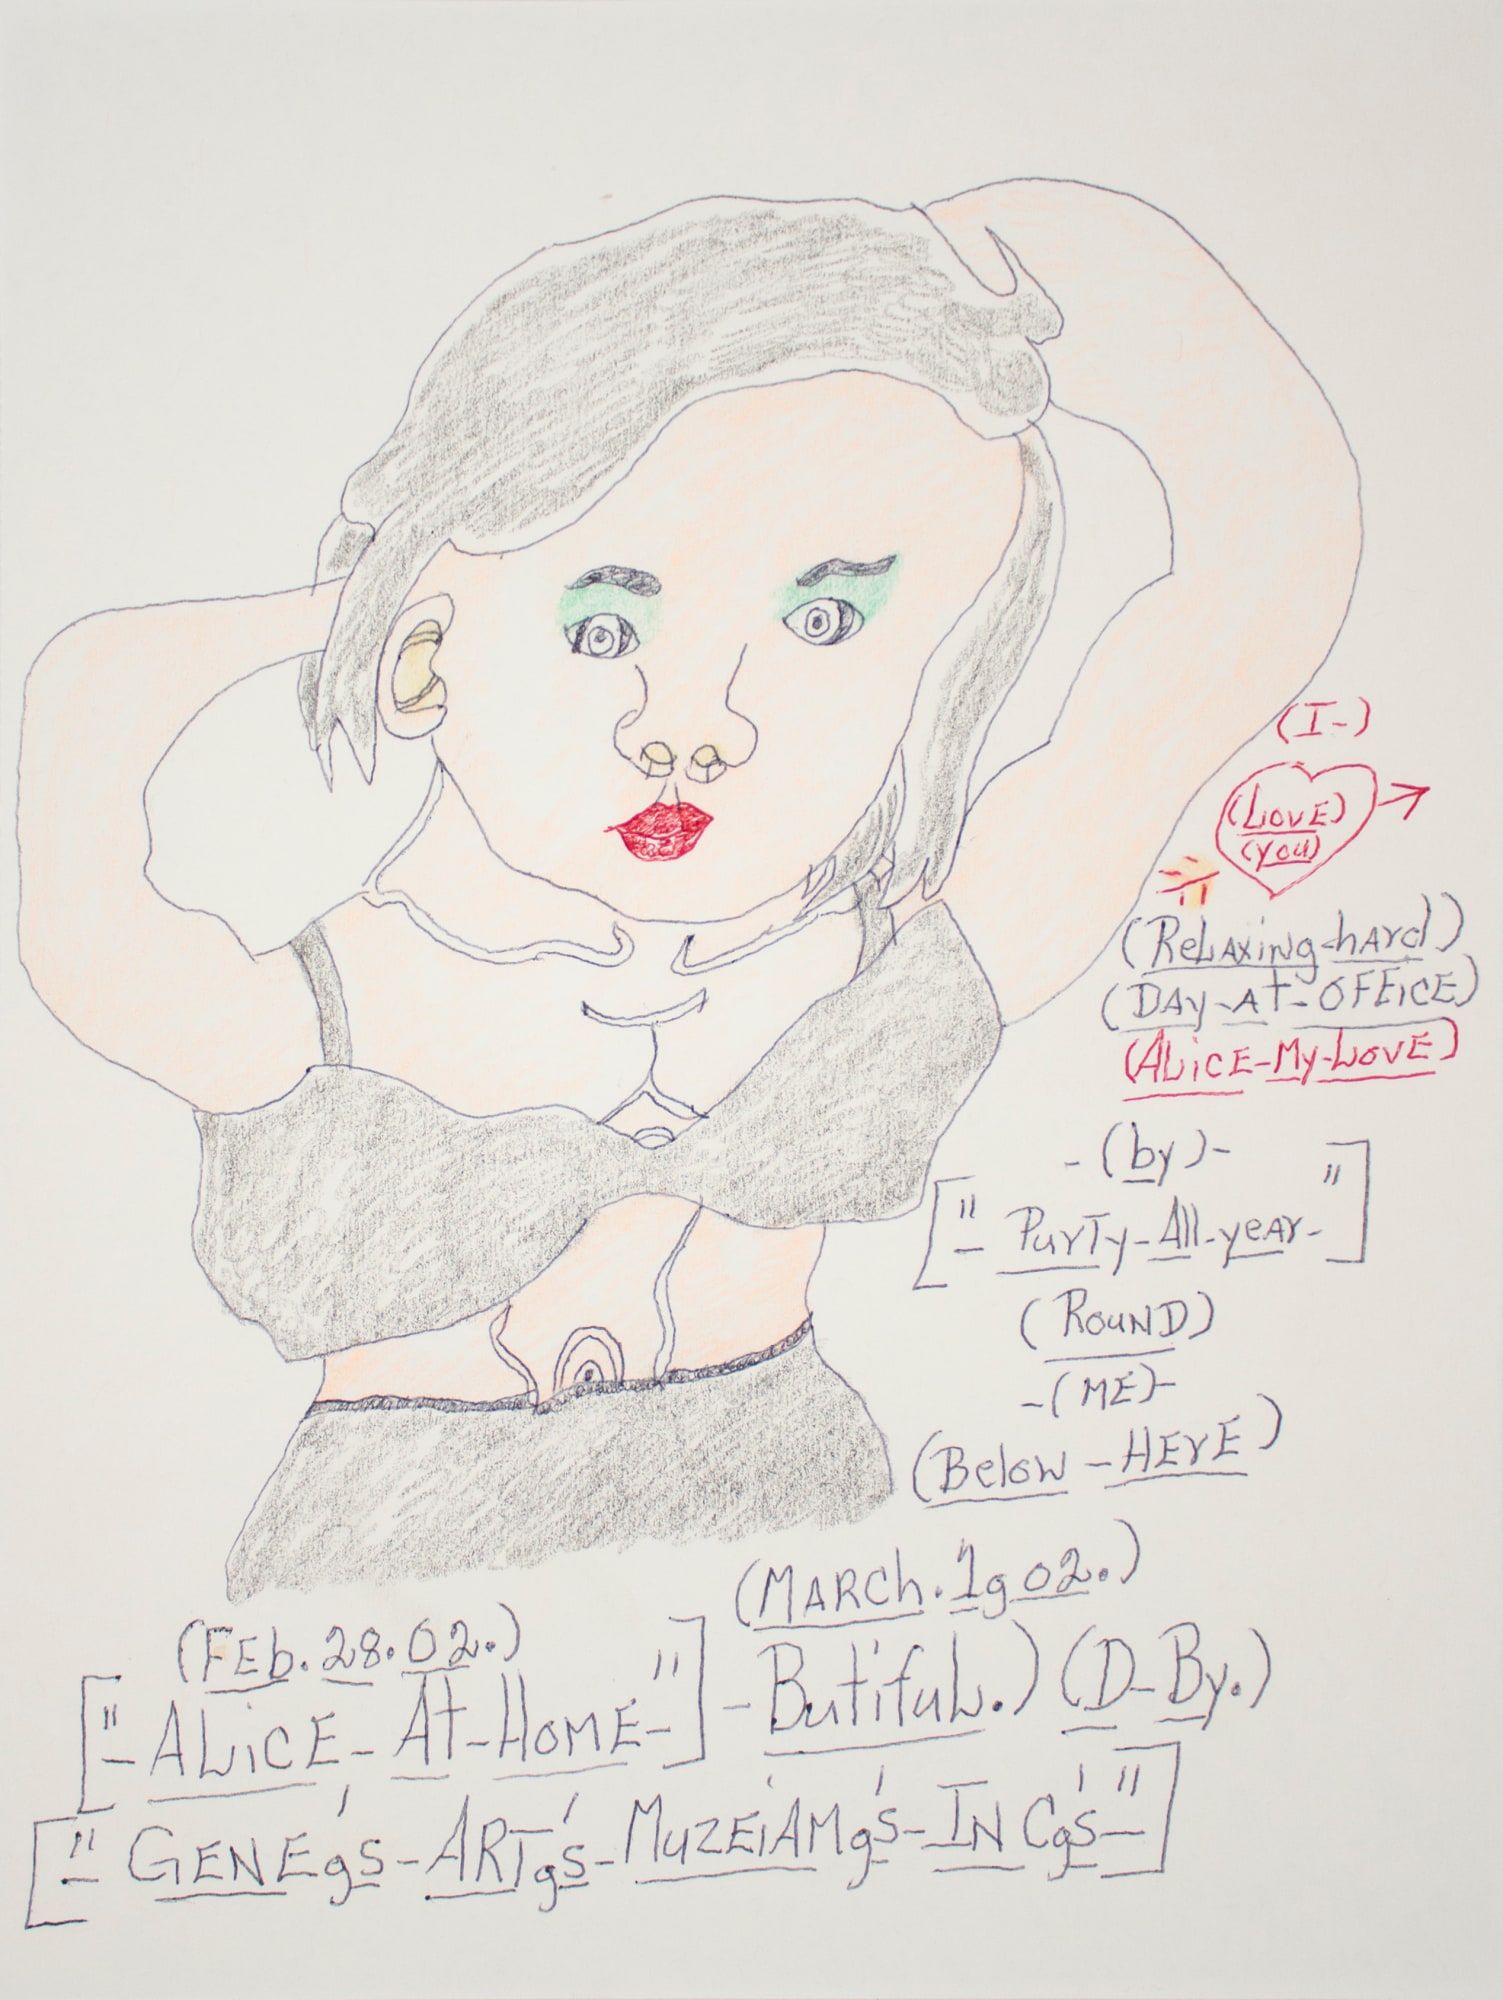 (I-)
(LOVE)
(you)
(RELAXING-hARd)
(DAy-AT-OFFiCE)
(ALiCE-My-LOVE)
-(by)-
["-PurTy-All-yeAr-"]
(ROUND)
-(ME)-
(Below-HErE)
(MARCh.1g02.)
(FEb.28.02.)
["-ALiCE-AT-HOME-"]-ButifuL.) (D-By.)
["-GENEg's-ARTg's-MuZEiAMg's-IN Cg's-"]